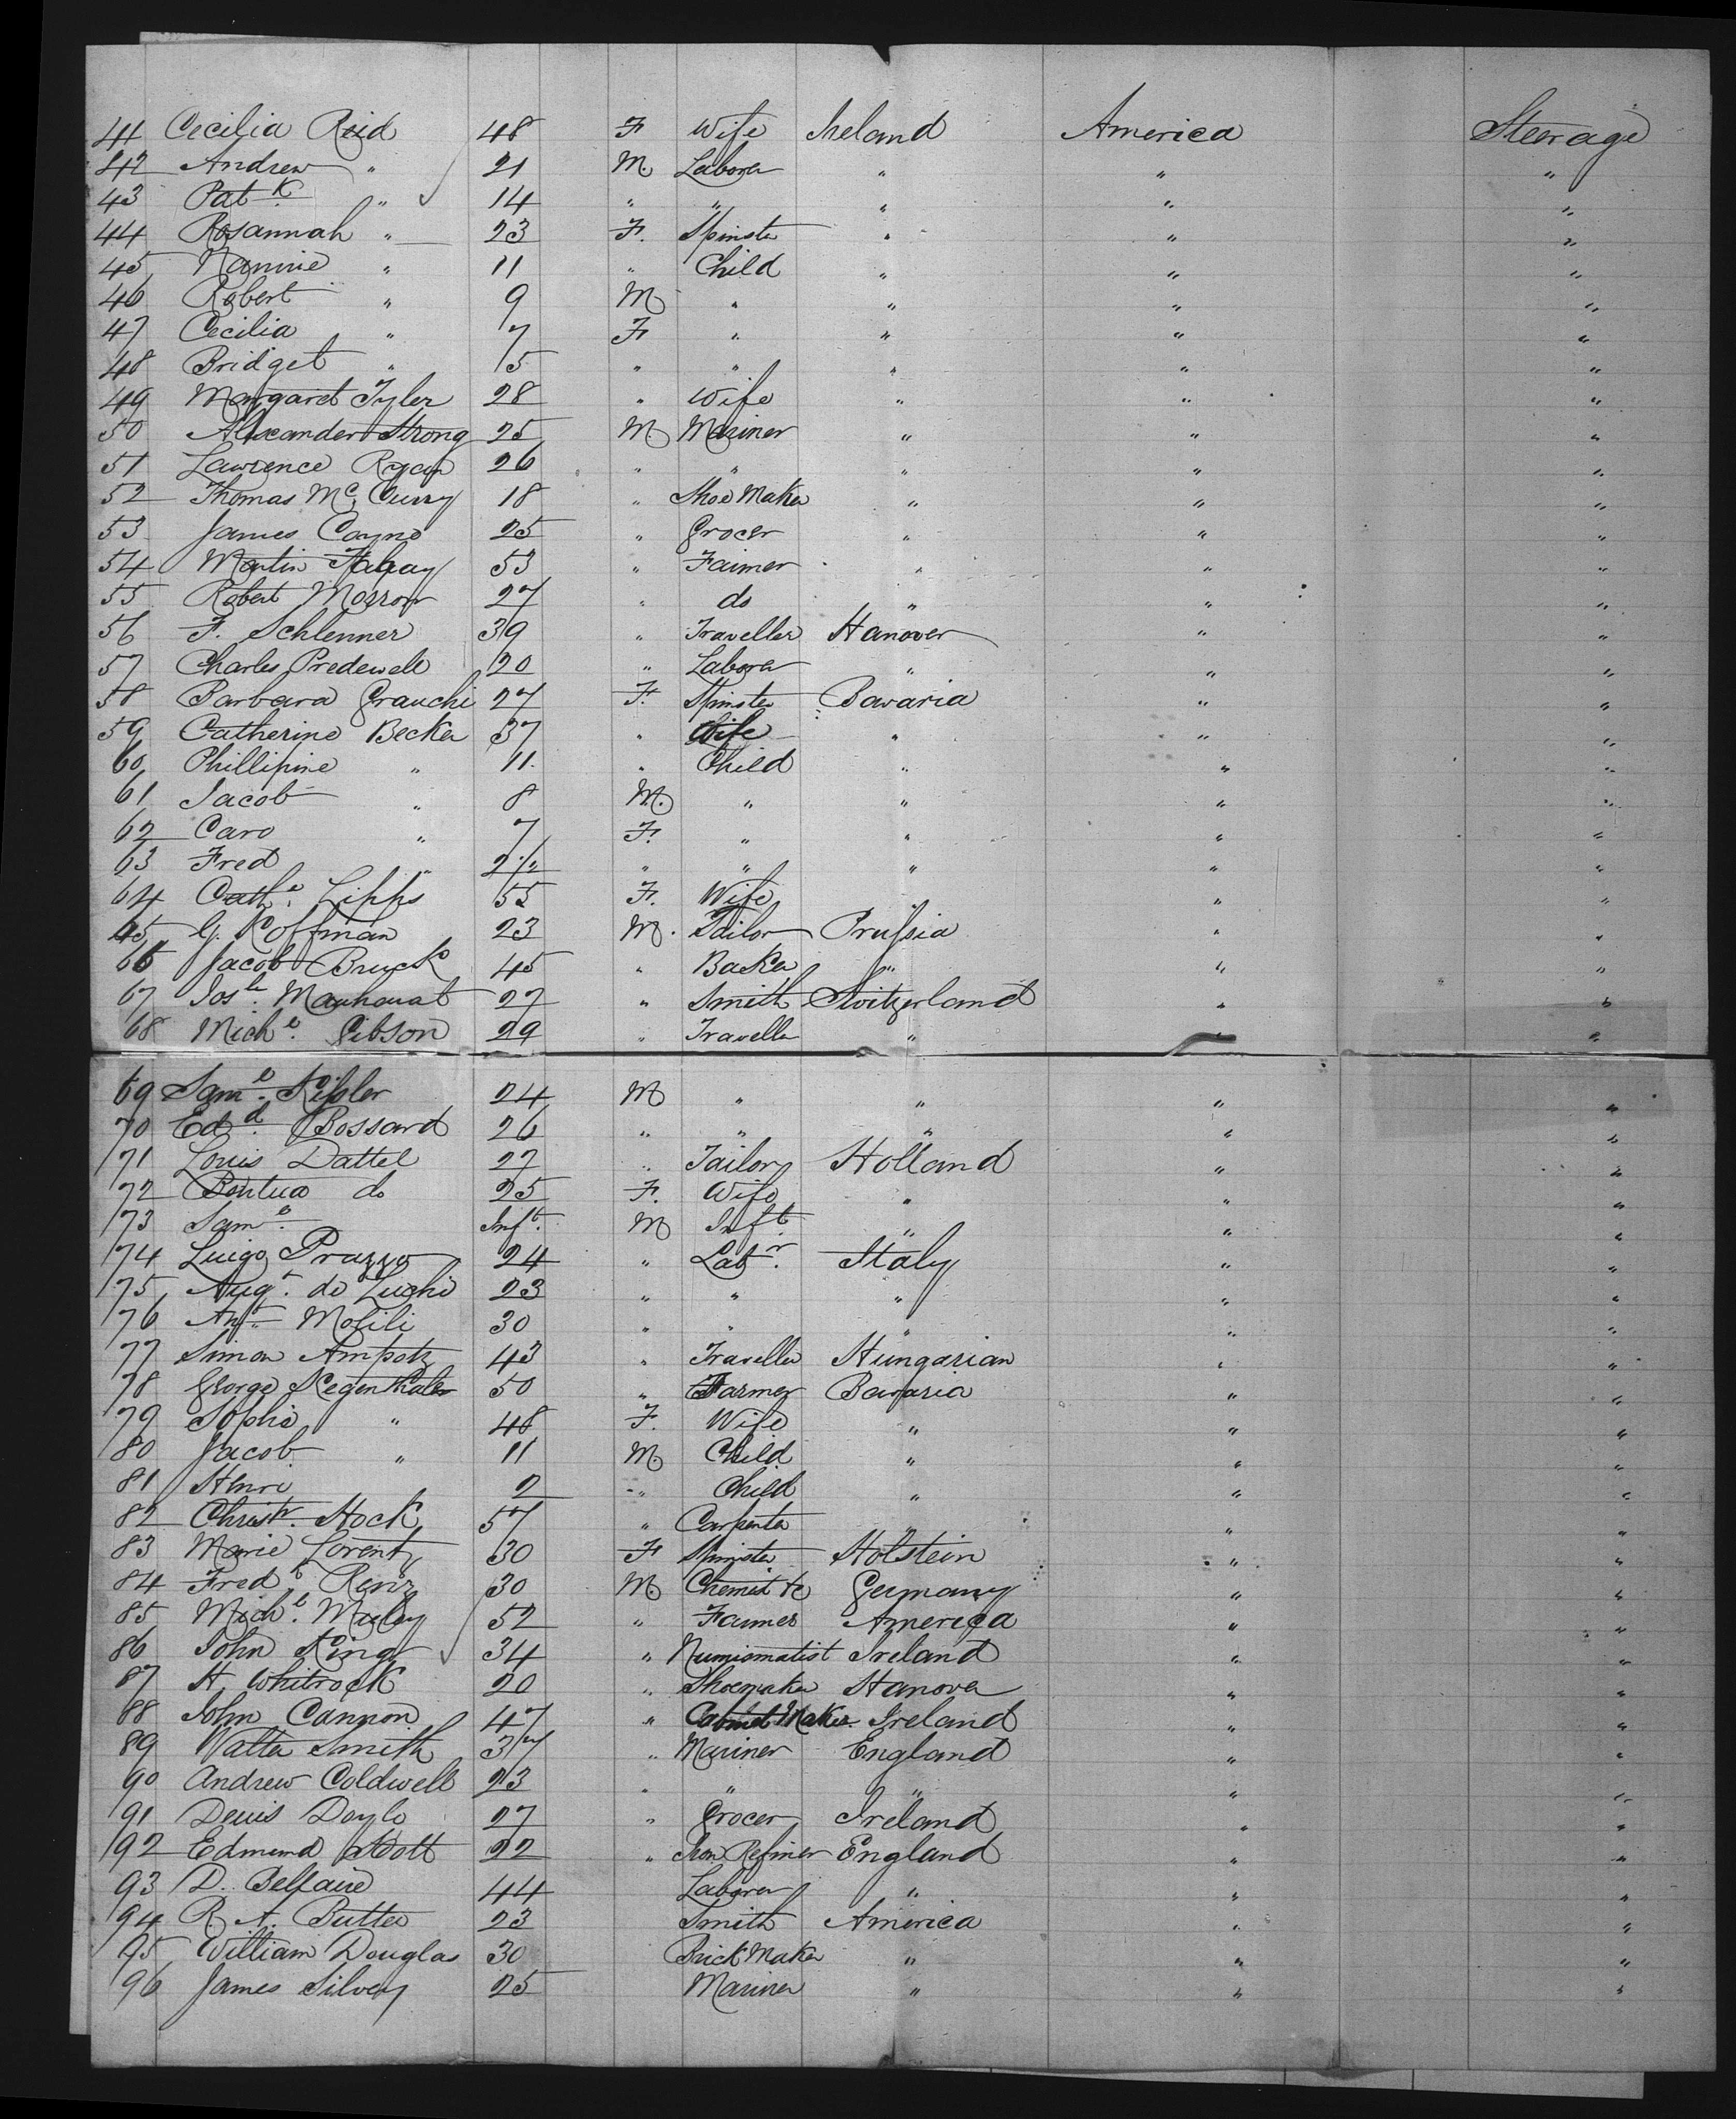 41 Cecilia Reid 48 F Wife Ireland America Steerage
42 Andrew " 21 M Labora " " "
43 Patk " 14 " " " " "
44 Rosannah " 23 F. Spinster " " "
45 Nannie " 11 " Child " " "
46 Robert " 9 M " " " "
47 Cecilia " 7 F " " " "
48 Bridget " 5 " " " " "
49 Margaret Tyler 28 " Wife " " "
50 Alexander Strong 25 M. Mariner " " "
51 Lawrence Ryan 26 " " " " "
52 Thomas Mc Curry 18 " Shoe Maker " " "
53 James Coyne 25 " Grocer " " "
54 Martin Fahay 53 " Farmer " " "
55 Robert Morrow 27 " do " " "
56 F. Schlenner 39 " Traveller Hanover " "
57 Charles Predewell 20 " Labora " " "
58 Barbara Grauchi 27 F. Spinster Bavaria " "
59 Catherine Becker 37 " Wife " " "
60 Phillipine " 11 " Child " " "
61 Jacob " 8 M. " " " "
62 Caro " 7 F. " " " "
63 Fred " " " " " "
64 Cathe. Lipps 55 F. Wife " "
65 G. Koffman 23 M. Tailor Prussia " "
66 Jacob Bruck 45 " Baker " " "
67 Josh. 27 " Smith Switzerland " "
68 Michl. Gibson 29 " Traveller " " "
69 Saml. 24 M " " " "
70 Edd. Bossard 26 " " " " "
71 Louis Dattel 27 " Tailor Holland " "
72 do 25 F. Wife " " "
73 Saml. Inft. M Inft. " " "
74 Luigo Prazzo 24 " Labr. Italy " "
75 Augt. de Luchi 23 " " " " "
76 Ant. Mofili 30 " " " " "
77 Simon Ampotz 43 " Traveller Hungarian " "
78 George Regenthaler 50 " Farmer Bavaria " "
79 Sophie " 48 F. Wife " " "
80 Jacob " 11 M. Child " " "
81 Henri 2 " Child " " "
82 Christr. Hock 57 " Carpenter " " "
83 Marie Lorentz 30 F Spinster Holstein " "
84 Fredk Renz 30 M. Chemist &c Germany " "
85 Michl. 52 " Farmer America " "
86 John King 34 " Numismatist Ireland " "
87 H. Whitrock 20 " Shoemaker Hanover " "
88 John Cannon 47 " Cabinet Maker Ireland " "
89 Walter Smith 37 " Mariner England " "
90 Andrew Coldwell 23 " " " " "
91 Denis Doyle 27 " Grocer Ireland " "
92 Edmund 22 " Iron Refiner England " "
93 D. Belfaire 44 Laborer " " "
94 R. A. Butter 23 Smith America " "
95 William Douglas 30 Brick Maker " " "
96 James Silvey 25 Mariner " " "